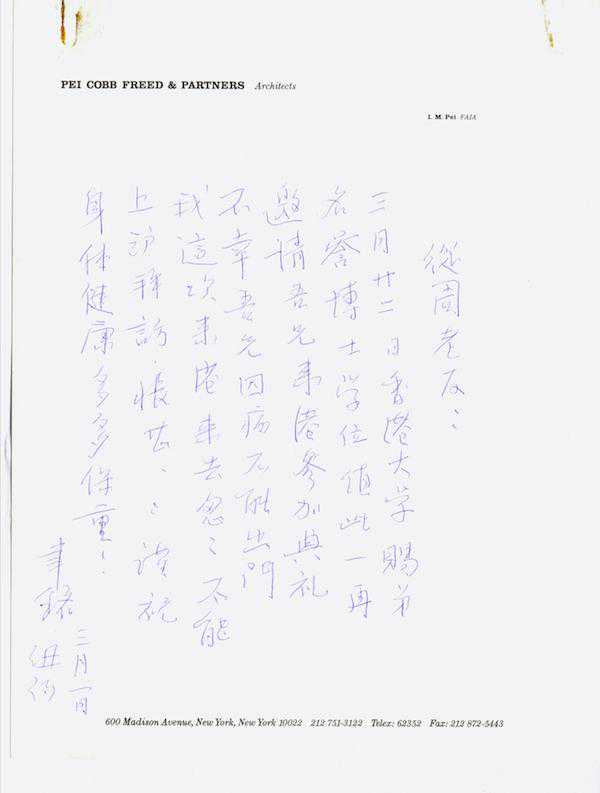 PEI COBB FREED & PARTNERS Architects
I. M. Pei FAIA
從周老友：
三月廿二日香港大学賜弟
名誉博士学位值此一再
邀請吾兄来港参加典礼
不幸吾兄因病不能出門
我這次来港来去忽〻不能
上 拜訪.悵甚、〻 谨祝
身体健康多多保重！
聿銘
三月一日
纽约
600 Madison Avenue, New York, New York 10022 212 751-3122 Telex: 62352 Fax: 212 872-5443